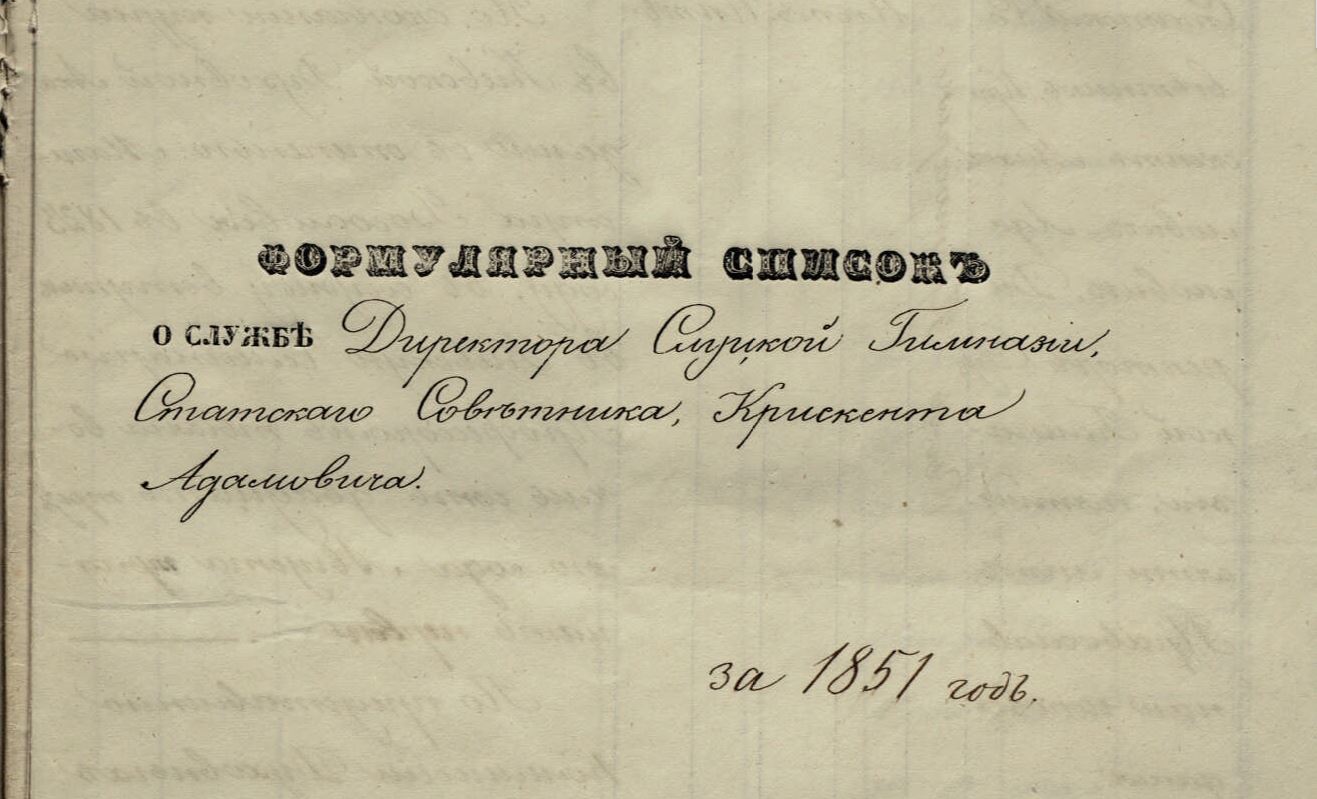 ФОРМУЛЯРНЫЙ СПИСОКЪ
О СЛУЖБѢ Директора Слуцкой Гимназіи,
Статскаго Совѣтника, Крискента
Адамовича.
за 1851 годъ.